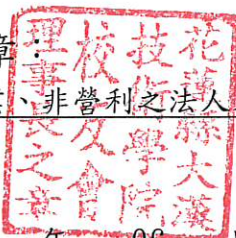 章：
、非營利之法人
花蓮縣大漢
技術學院
校友會
理事長之章
年 06